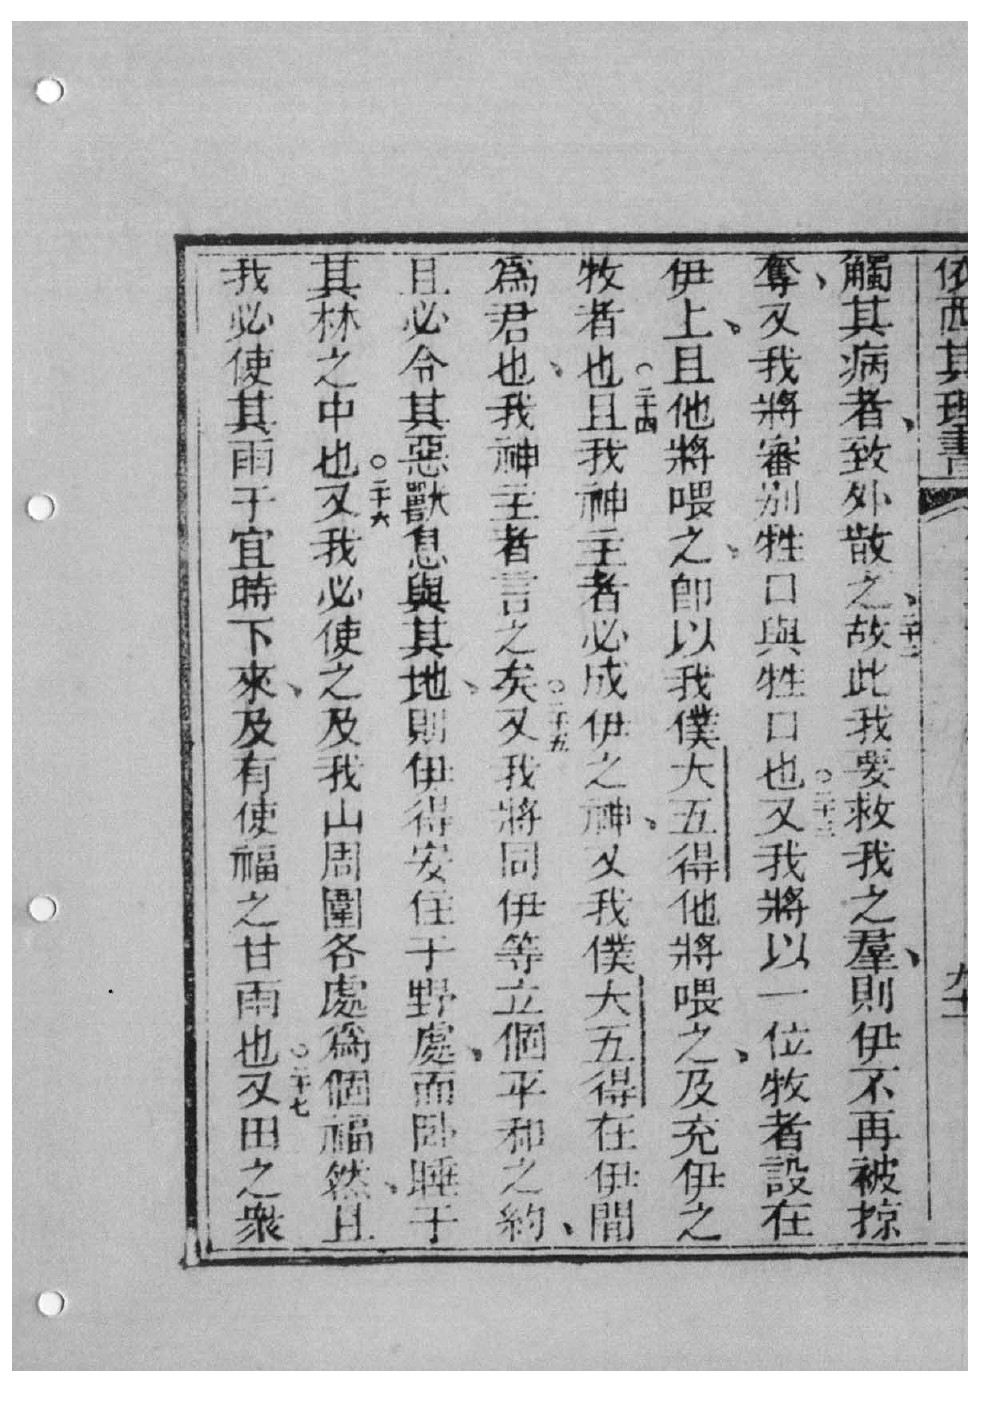 依西其理書
觸其病者、致外散之、二十二故此我要救我之羣、則伊不再被掠
奪、又我將審別牲口與牲口也○二十三又我將以一位牧者設在
伊上、且他將喂之、卽以我僕大五得他將喂之、及充伊之
牧者也○二十四且我神主者必成伊之神、又我僕大五得在伊間
爲君也、我神主者言之矣○二十五又我將同伊等立個平和之約、
且必令其惡獸息與其地、則伊得安住于野處、而卧睡于
其林之中也○二十六又我必使之及我山周圍各處爲個福然、且
我必使其雨于宜時下來、及有使福之甘雨也○二十七又田之衆